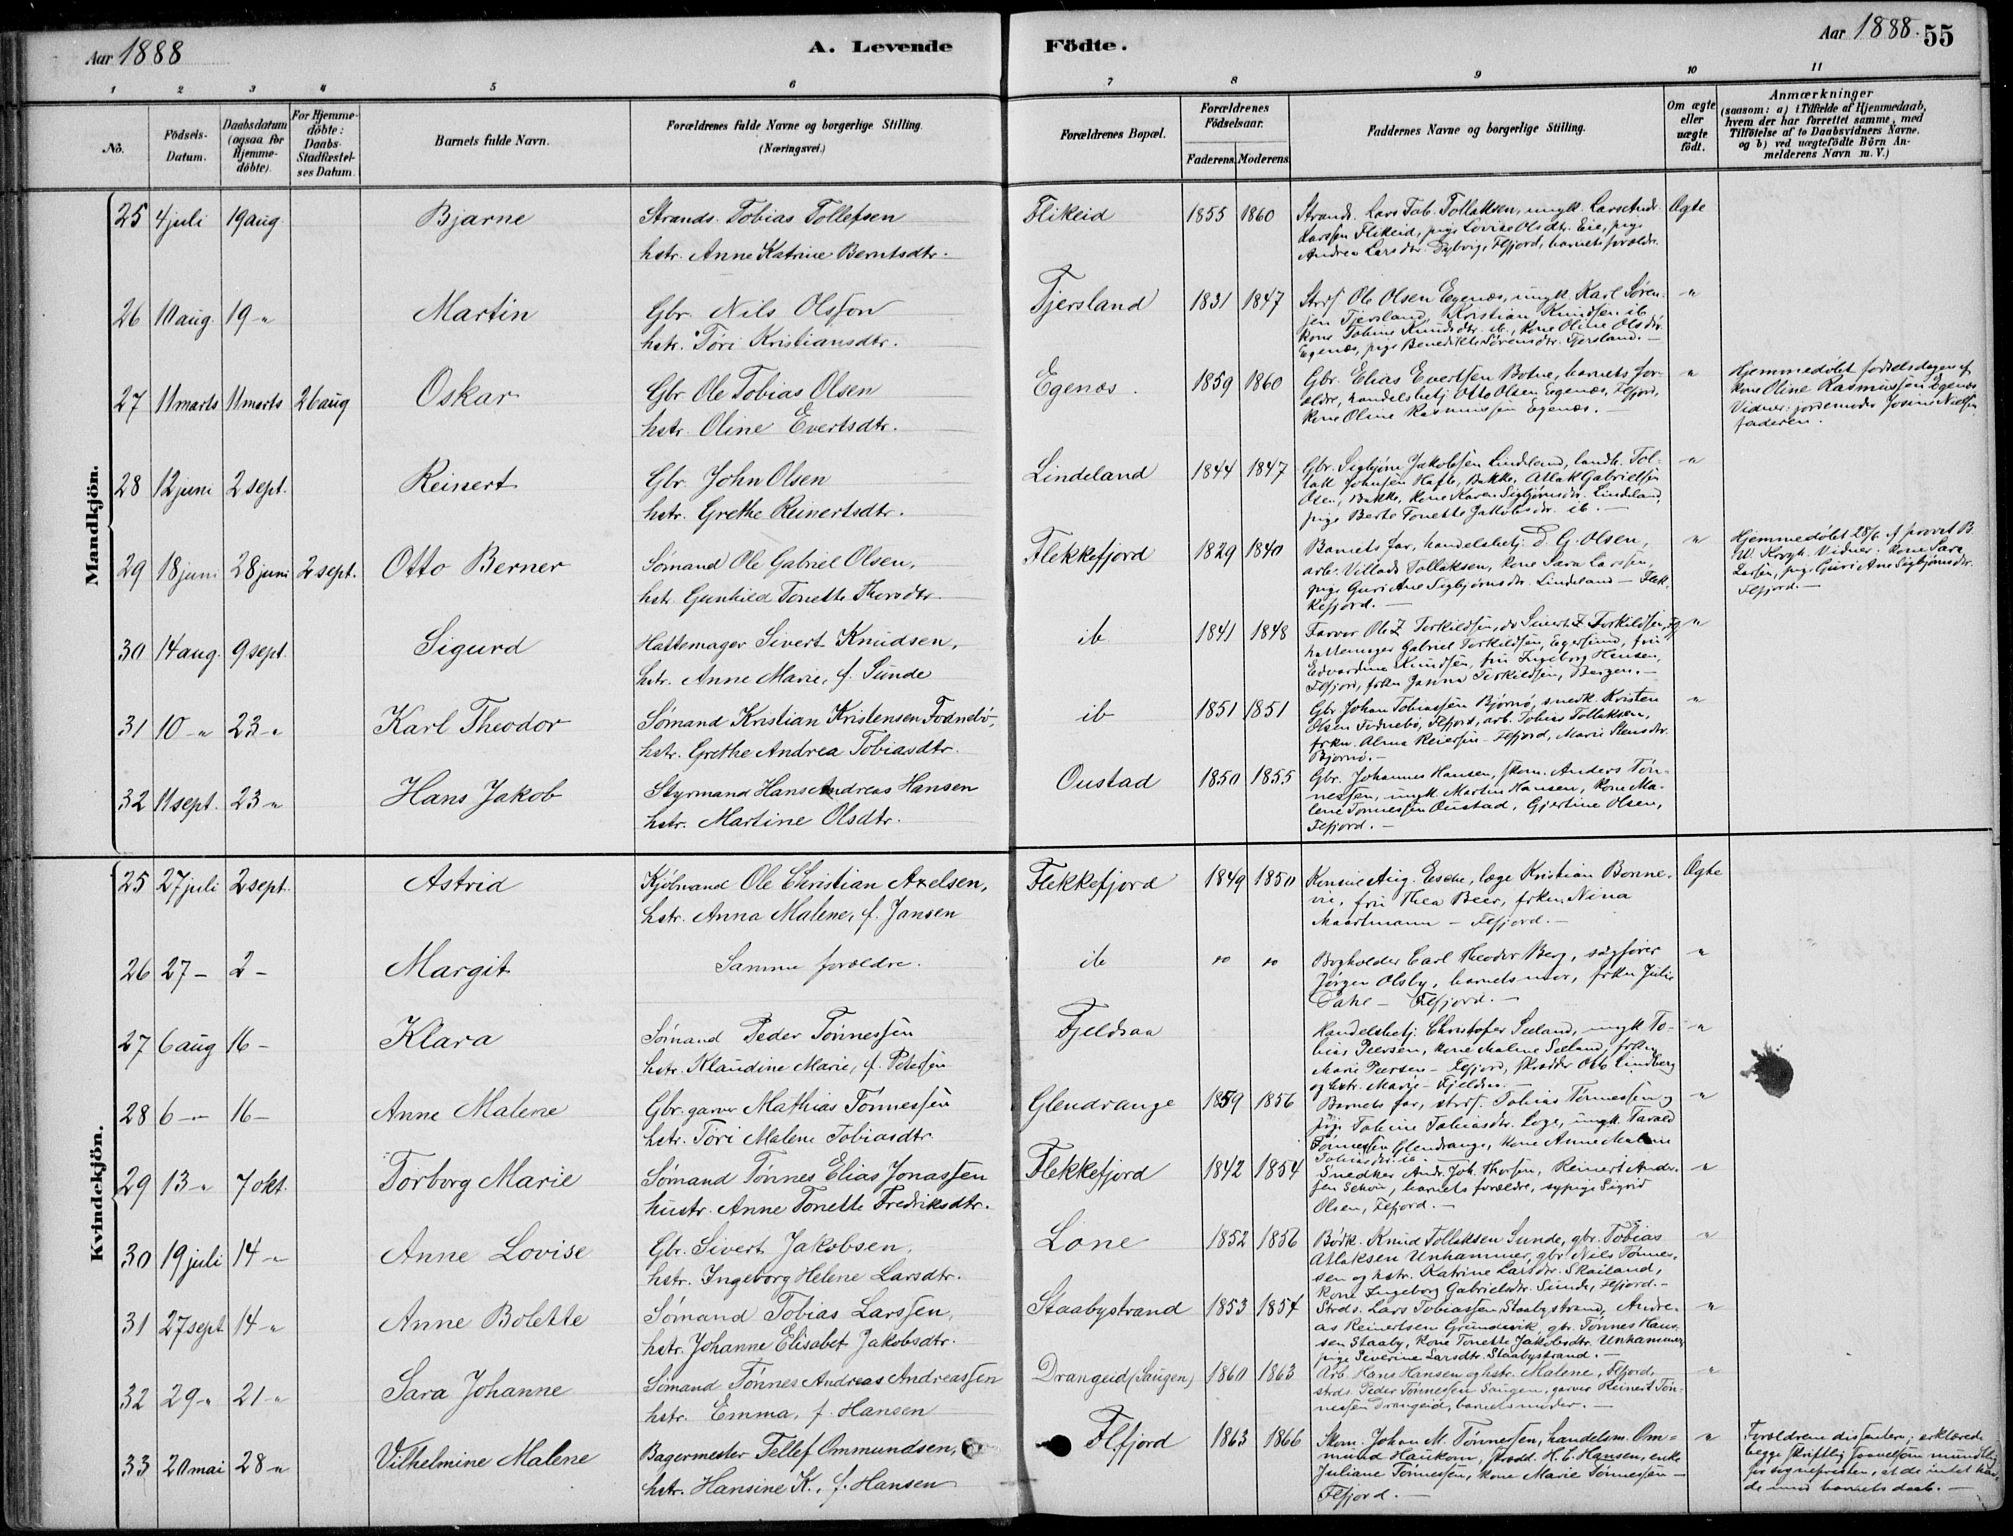 Aar 1888 A. Levende Födte. Aar 1888. 55
1 2 3 4 5 6 7 8 9 10 11
No.
Födsels-Datum.
Daabsdatum (ogsaa for Hjemmedöbte).
For Hjemmedöbte: Daabs-Stadfæstelses Datum.
Barnets fulde Navn.
Forældrenes fulde Navne og borgerlige Stilling. (Næringsvei.)
Forældrenes Bopæl.
Forældrenes Födselsaar.
Faderens. Moderens.
Faddernes Navne og borgerlige Stilling.
Om ægte eller uægte födt.
Anmærkninger
(saasom: a) i Tilfælde af Hjemmedaab, hvem der har forrettet samme, med Tilföielse af to Daabsvidners Navne. og b) ved uægtefödte Börn Anmelderens Navn m. V.)
Mandkjön.
25 4 juli 19 aug. Bjarne
Strands. Tobias Tollefsen
hstr. Anne Katrine Berntsdtr.
Flikeid 1855 1860
Strands. Lars Tob. Tollaksen, ungk. Lars Andr.
Larssen Flikeid, pige Lovise Olsdtr. Eie, pige
Andrea Larsdtr. Flfjord, barnets forældr.
Ægte
26 10 aug. 19 "
Martin
Gbr. Nils Olsson
hstr. Tori Kristiansdtr.
Tjersland 1831 1847
Strds. Ole Olsen Egenæs, ungk. Karl Sören-
sen Tjersland, Kristian Knudsen ib.
kone Tobine Knudsdtr. ib., kone Oline Olsdtr.
Egenæs, pige Benedikte Sörensdtr. Tjersland. -
"
27 11 marts 11 marts 26 aug
Oskar
Gbr. Ole Tobias Olsen
hstr. Oline Evertsdtr.
Egenæs. 1859 1860
Gbr. Elias Evertsen Botne, barnets for-
ældre, handelsbetj. Otto Olsen Egenæs, Flfjord,
kone Oline Rasmussen Egenæs. -
"
Hjemmedøbt fødselsdagen af
kone Oline Rasmussen Egenæs
Vidner: jordemoder Josine Nielsen
faderen.
28 12 juni 2 sept.
Reinert
Gbr. John Olsen
hstr. Grethe Reinertsdtr.
Lindeland 1844 1847
Gbr. Sigbjörn Jakobsen Lindland, landh. Tol-
lak Johnsen Bakke, Atlak Gabrielsen
Olsen, Bakke, kone Karen Sigbjörnsdtr. Lindeland,
pige Berte Tonette Jakobsdtr. ib. -
"
29 18 juni 28 juni 2 sept.
Otto Berner
Sömand Ole Gabriel Olsen,
hstr. Gunhild Tonette Thorsdtr.
Flekkefjord 1829 1840
Barnets far, handelsbetj. D. G. Olsen,
arb. Villads Tollaksen, kone Sara Larssen,
pige Guri Ane Sigbjörnsdtr. Lindeland - Flek-
kefjord. -
"
Hjemmedøbt 28/6 af provst B.
W. Krogh. Vidner: kone Sara
Larsen, pige Guri Ane Sigbjörnsdtr.
Flfjord. -
30 14 aug. 9 sept.
Sigurd
Hattemager Sivert Knudsen,
hstr. Anne Marie, f. Sunde
ib 1841 1848
Farver Ole Z. Torkildsen, do Sivert Z. Torkildsen,
hattemager Gabriel Torkildsen, Egersund, fru
Edvardine Knudsen, fru Ingeborg Hansen,
Flfjord, frkn Janna Torkildsen, Bergen. -
"
31 10 - " 23 "
Karl Theodor
Sömand Kristian Kristensen Fodnebö,
hstr. Grethe Andrea Tobiasdtr.
ib 1851 1851
Gbr. Johan Tobiassen Björnö, snedk. Kristen
Olsen Fodnebö, Flfjord, arb. Tobias Tollaksen,
frkn. Alma Reiersen - Flfjord, Marie
Björnö. -
"
32 11 sept. 23 "
Hans Jakob
Styrmand Hans Andreas Hansen
hstr. Martine Olsdtr.
Oustad 1850 1855
Gbr. Johannes Hansen, skom. Anders Tön-
nessen, ungk. Martin Hansen, kone Ma-
lene Tönnessen Oustad, Gjertine Olsen,
Flfjord. -
Kvindekjön.
25 27 juli 2 sept.
Astrid
Kjöbmand Ole Christian Axelsen,
hstr. Anna Malene, f. Jansen
Flekkefjord 1849 1850
Konsul Aug. Esche, læge Kristian Bonne-
vie, fru Thea Beer, frkn. Nina
Maartmann - Flfjord. -
Ægte
26 27 - 2 -
Margit
Samme forældre.
ib " "
Bogholder Carl Theodor Berg, sagförer
Jörgen Olsby, barnets mor, frkn Julie
Dahl - Flfjord. -
"
27 6 aug 16 -
Klara
Sömand Peder Tönnessen
hstr. Klaudine Marie, f. Petersen
Fjeldsaa
Handelsbetj. Christofer Seland, ungk. To-
bias Peersen, kone Malene Seland, frkn
Marie Peersen - Flfjord, skrædder Otto Lindberg
og hstr. Marie - Fjeldsaa.
"
28 6 - " 16 -
Anne Malene
Gbr. garver Mathias Tönnessen
hstr. Tori Malene Tobiasdtr.
Glendrange 1859 1856
Barnets far, strds. Tobias Tönnessen og
pige Tobine Tobiasdtr. Loge, ungk. Tarald
Tönnessen Glendrange, kone Anne Malene
Tobiasdtr. ib. -
"
29 13 - " 7 okt.
Torborg Marie
Sömand Tönnes Elias Jonassen
hustr. Anne Tonette Fredriksdtr.
Flekkefjord 1842 1854
Snedker Andr. Joh. Thorsen, Reinert Ander-
sen Schön, barnets forældre, sypige Sigrid
Olsen, Flfjord. -
"
30 19 juli 14 - "
Anne Lovise
Gbr. Sivert Jakobsen,
hstr. Ingeborg Helene Larsdtr.
Lone 1852 1856
Bödk. Knud Tollaksen Sunde, gbr. Tobias
Atlaksen Unhammer, gbr. Nils Tönnes-
sen og hstr. Katrine Larsdtr. Skailand,
kone Ingeborg Gabrielsdtr. Sunde, Flfjord. -
"
31 27 sept 14 - "
Anne Bolette
Sömand Tobias Larssen,
hstr. Johanne Elisabet Jakobsdtr.
Staabystrand 1853 1854
Strds. Lars Tobiassen Staabystrand, Andre-
as Reinertsen Grundsvik, gbr. Tönnes Han-
sen Staaby, kone Tonette Jakobsdtr. Unhammer,
pige Severine Larsdtr. Staabystrand. -
"
32 29 - " 21 - "
Sara Johanne
Sömand Tönnes Andreas Andreassen
hstr. Emma, f. Hansen
Drangeid (Saugen) 1860 1863
Arb. Hans Hansen og hstr. Malene, Flfjord,
strds. Peder Tönnessen Saugen, garver Reinert Tön-
nessen Drangeid, barnets moder. -
"
33 20 mai 28 - "
Vilhelmine Malene
Bagermester Tellef Ommundsen,
hstr. Hansine K., f. Hansen
Flfjord 1863 1866
Skom. Johan M. Tönnessen, handelsm. Om-
mund Haukom, skrædd. H. C. Hansen, enke
Juliane Tönnessen, kone Marie Tönnessen -
Flfjord. -
"
Forældrene dissentere; erklærede
begge skriftlig mundtlig
for sognepresten, at de intet hav-
de imod barnets daab. -